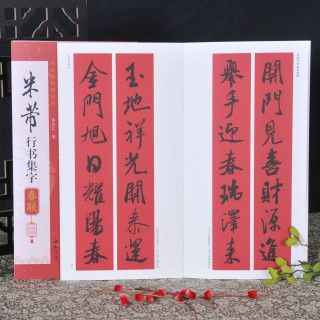 開門見善財源進
舉手迎春瑞澤来
玉地祥光開泰運
金門旭日耀陽春
米芾
行书集字
春联